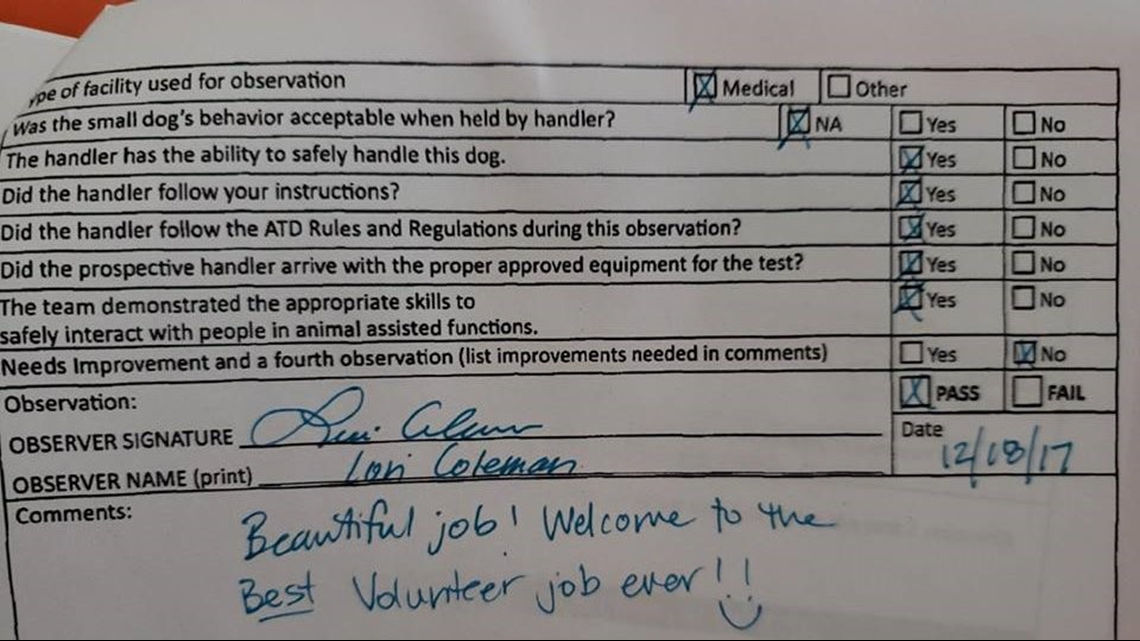 ype of facility used for observation Medical Other
Was the small dog's behavior acceptable when held by handler? NA Yes No
The handler has the ability to safely handle this dog. Yes No
Did the handler follow your instructions? Yes No
Did the handler follow the ATD Rules and Regulations during this observation? Yes No
Did the prospective handler arrive with the proper approved equipment for the test? Yes No
The team demonstrated the appropriate skills to Yes No
safely interact with people in animal assisted functions.
Needs Improvement and a fourth observation (list improvements needed in comments) Yes No
Observation: PASS FAIL
OBSERVER SIGNATURE Lori Coleman Date
OBSERVER NAME (print) Lori Coleman 12/18/17
Comments:
Beautiful job! Welcome to the
Best Volunteer job ever!!